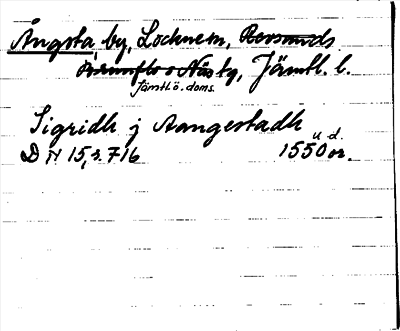 Ångsta, by, Lockne sn, Revsunds
Brunflo o Näs tg, Jämtl. l.
Jämtl. ö. doms.
Sigridh j Aangestadh
u. d.
D N 15, s. 716 1550 or.